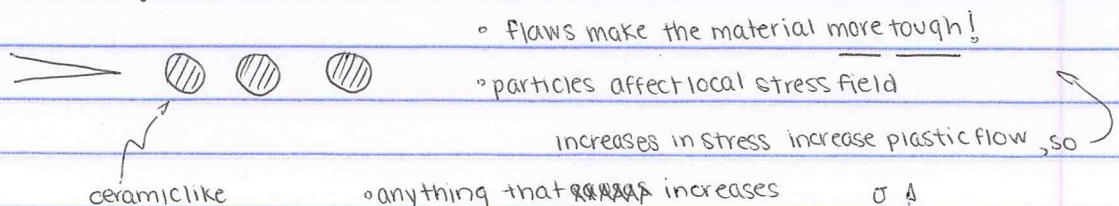 ◦ flaws make the material more tough!
◦ particles affect local stress field
increases in stress increase plastic flow, so
ceramiclike
◦ anything that increases
σ